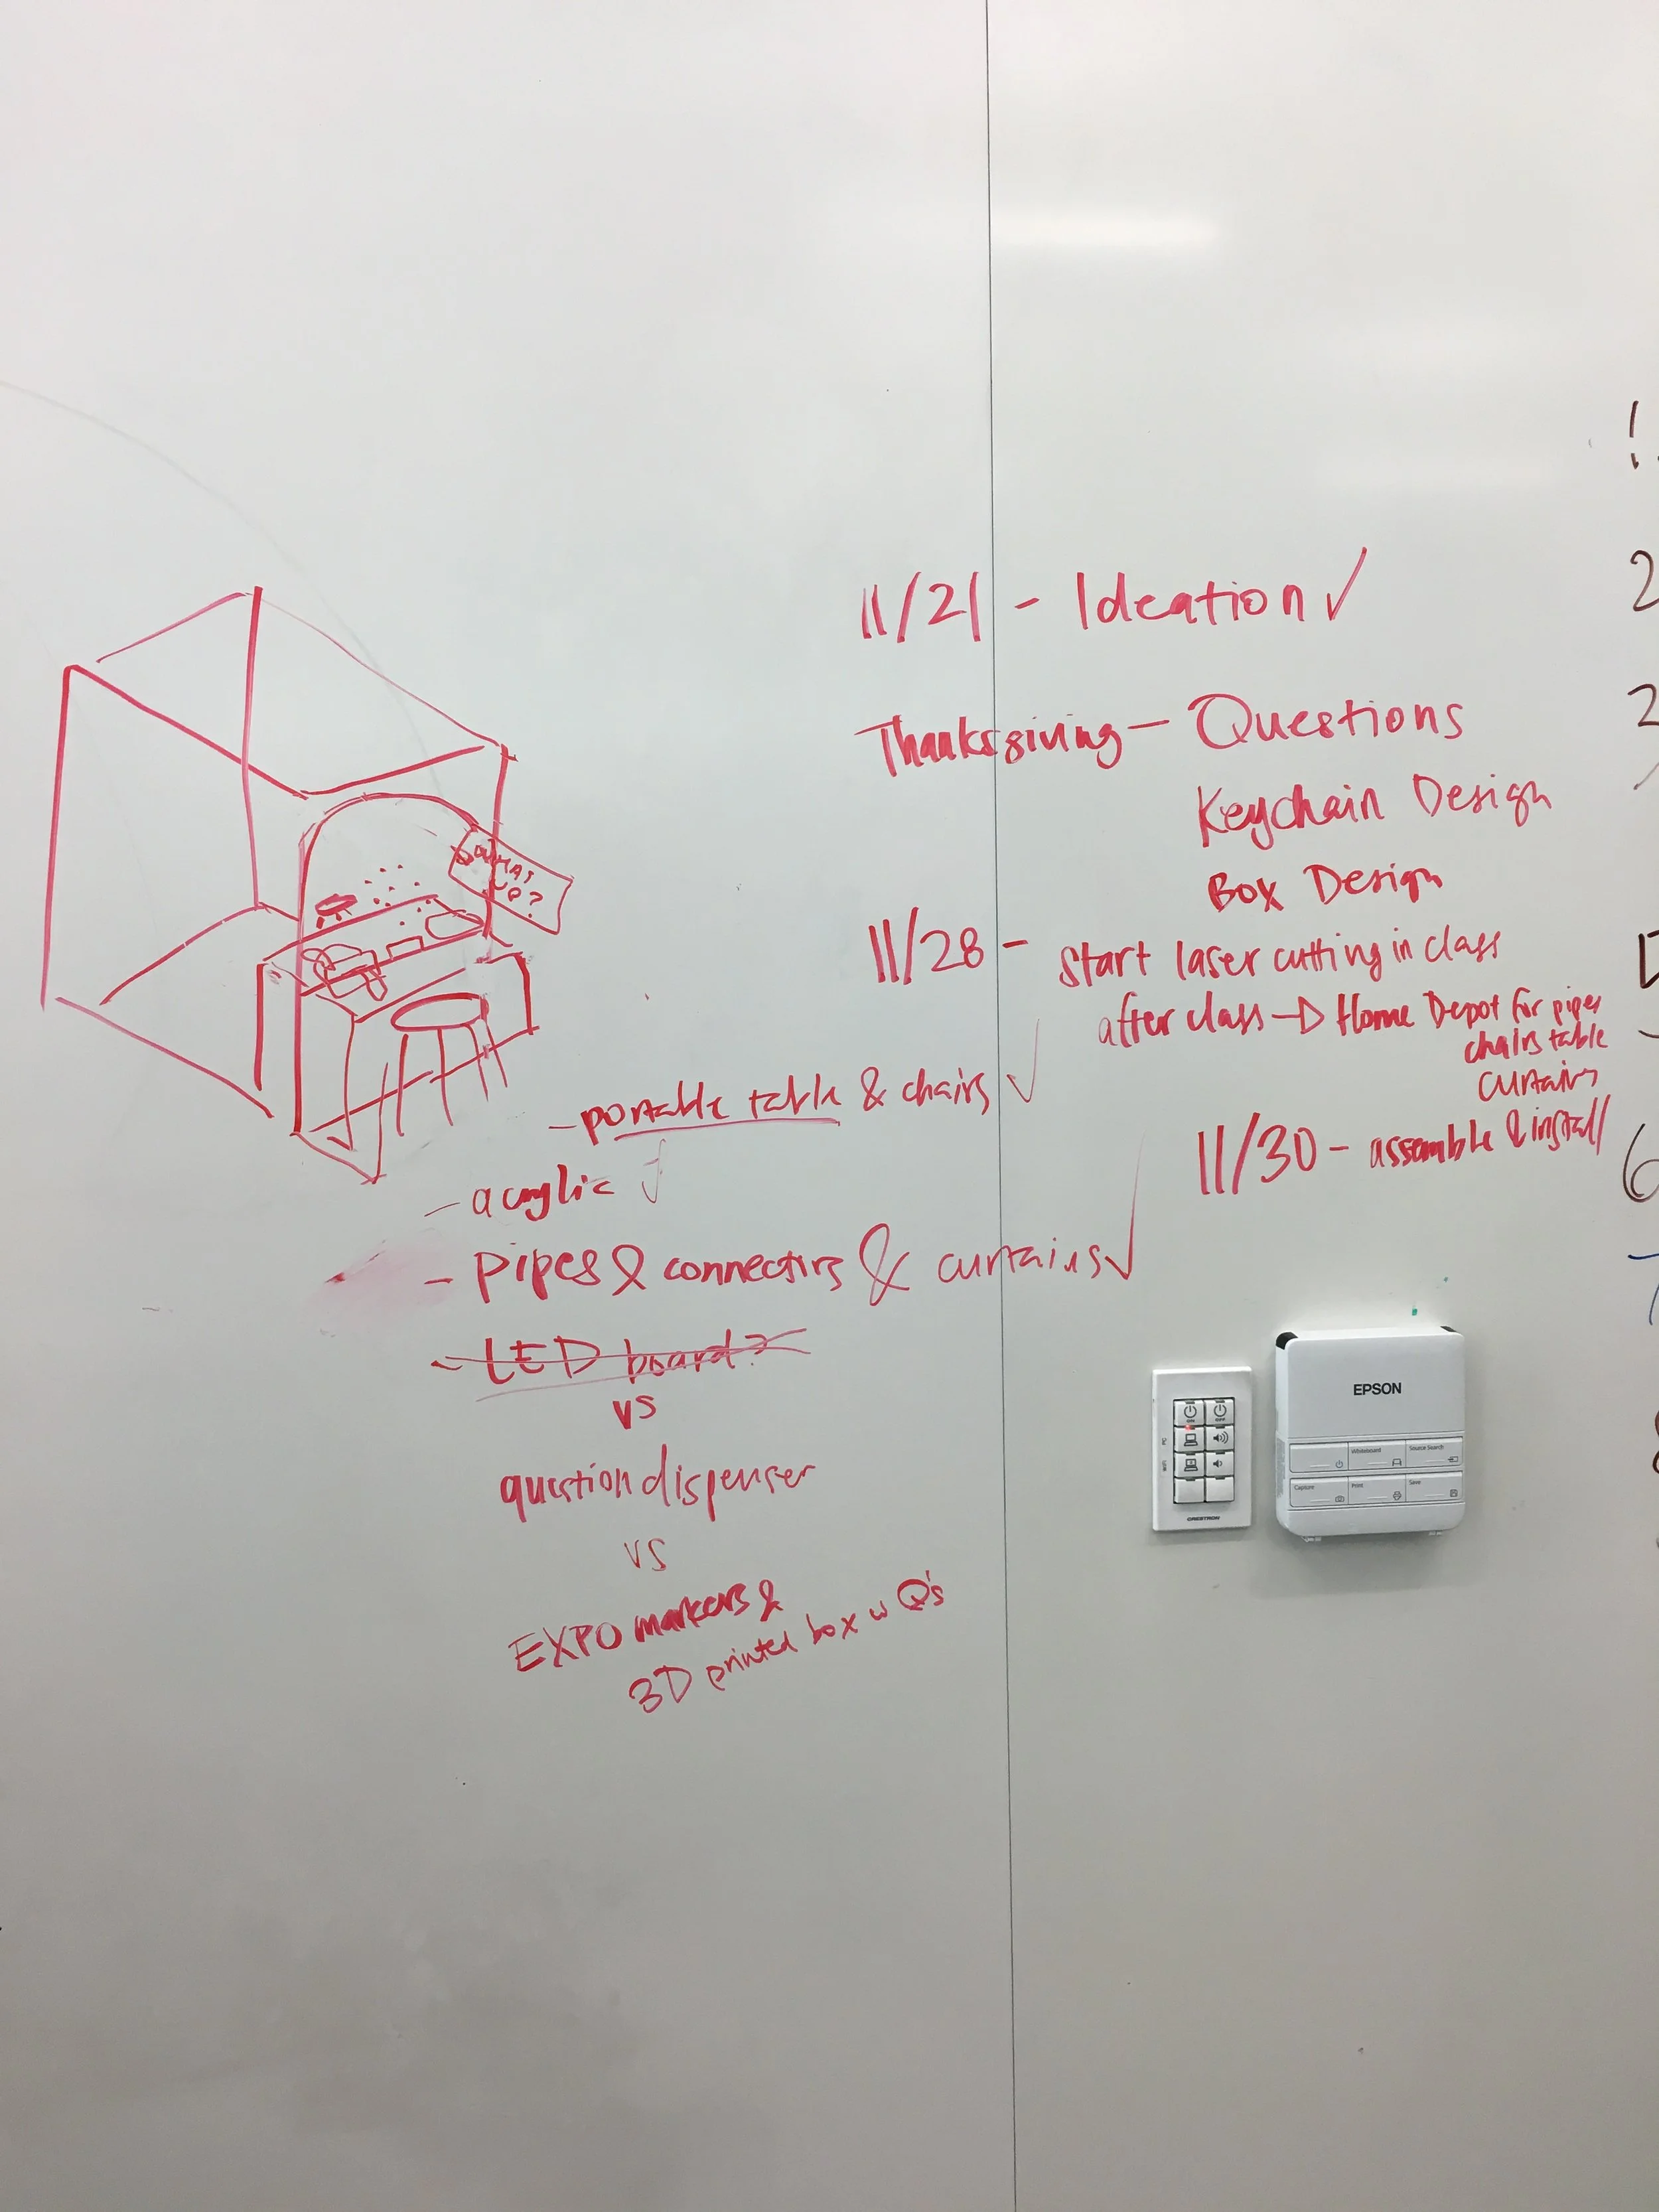 11/21 - Ideation ✓
Thanksgiving - Questions
Keychain Design
Box Design
11/28 - Start laser cutting in class
after class → Home Depot for pipes
chairs table
curtains
11/30 - assemble & install
WHAT
UP?
- portable table & chairs ✓
- acrylic ✓
- pipes & connectors & curtains ✓
- LED board?
vs
question dispenser
vs
EXPO markers &
3D printed box w Q's
EPSON
Whiteboard
Source Search
Capture
Print
Save
PC
WiFi
CRESTRON
2
6